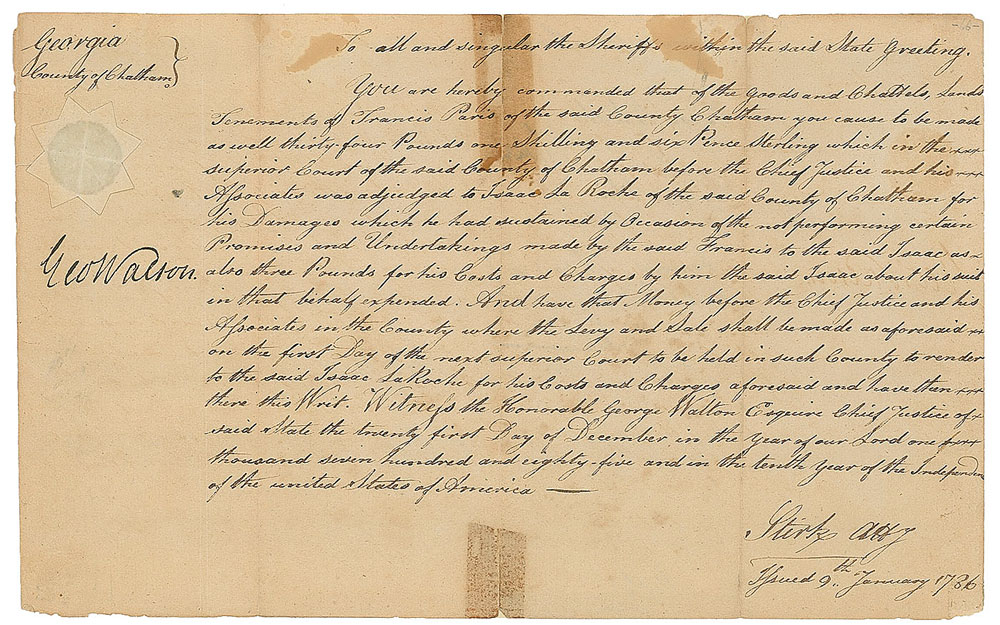 Georgia
County of Chatham
To all and singular the Sheriffs within the said State Greeting.
You are hereby commanded that of the Goods and Chattels, Lands
Tenements of Francis Paris of the said County Chatham you cause to be made
as well thirty-four Pounds one Shilling and six Pence Sterling which in the xxx
superior Court of the said County of Chatham before the Chief Justice and his xxx
Associates was adjudged to Isaac La Roche of the said County of Chatham for
his Damages which he had sustained by Occasion of the not performing certain
Promises and Undertakings made by the said Francis to the said Isaac as x
also three Pounds for his Costs and Charges by him the said Isaac about his suit
in that behalf expended. And have that Money before the Chief Justice and his
Associates in the County where the Levy and Sale shall be made as aforesaid xx
on the first Day of the next superior Court to be held in such County to render
to the said Isaac LaRoche for his Costs and Charges aforesaid and have then xxx
there this Writ. Witness the Honorable George Walton Esquire Chief Justice of x
said State the twenty first Day of December in the Year of our Lord one xxx
thousand seven hundred and eighty-five and in the tenth Year of the Independen
of the united States of America —
Geo Walton.
Stirk Atty
Issued 9th January 1786